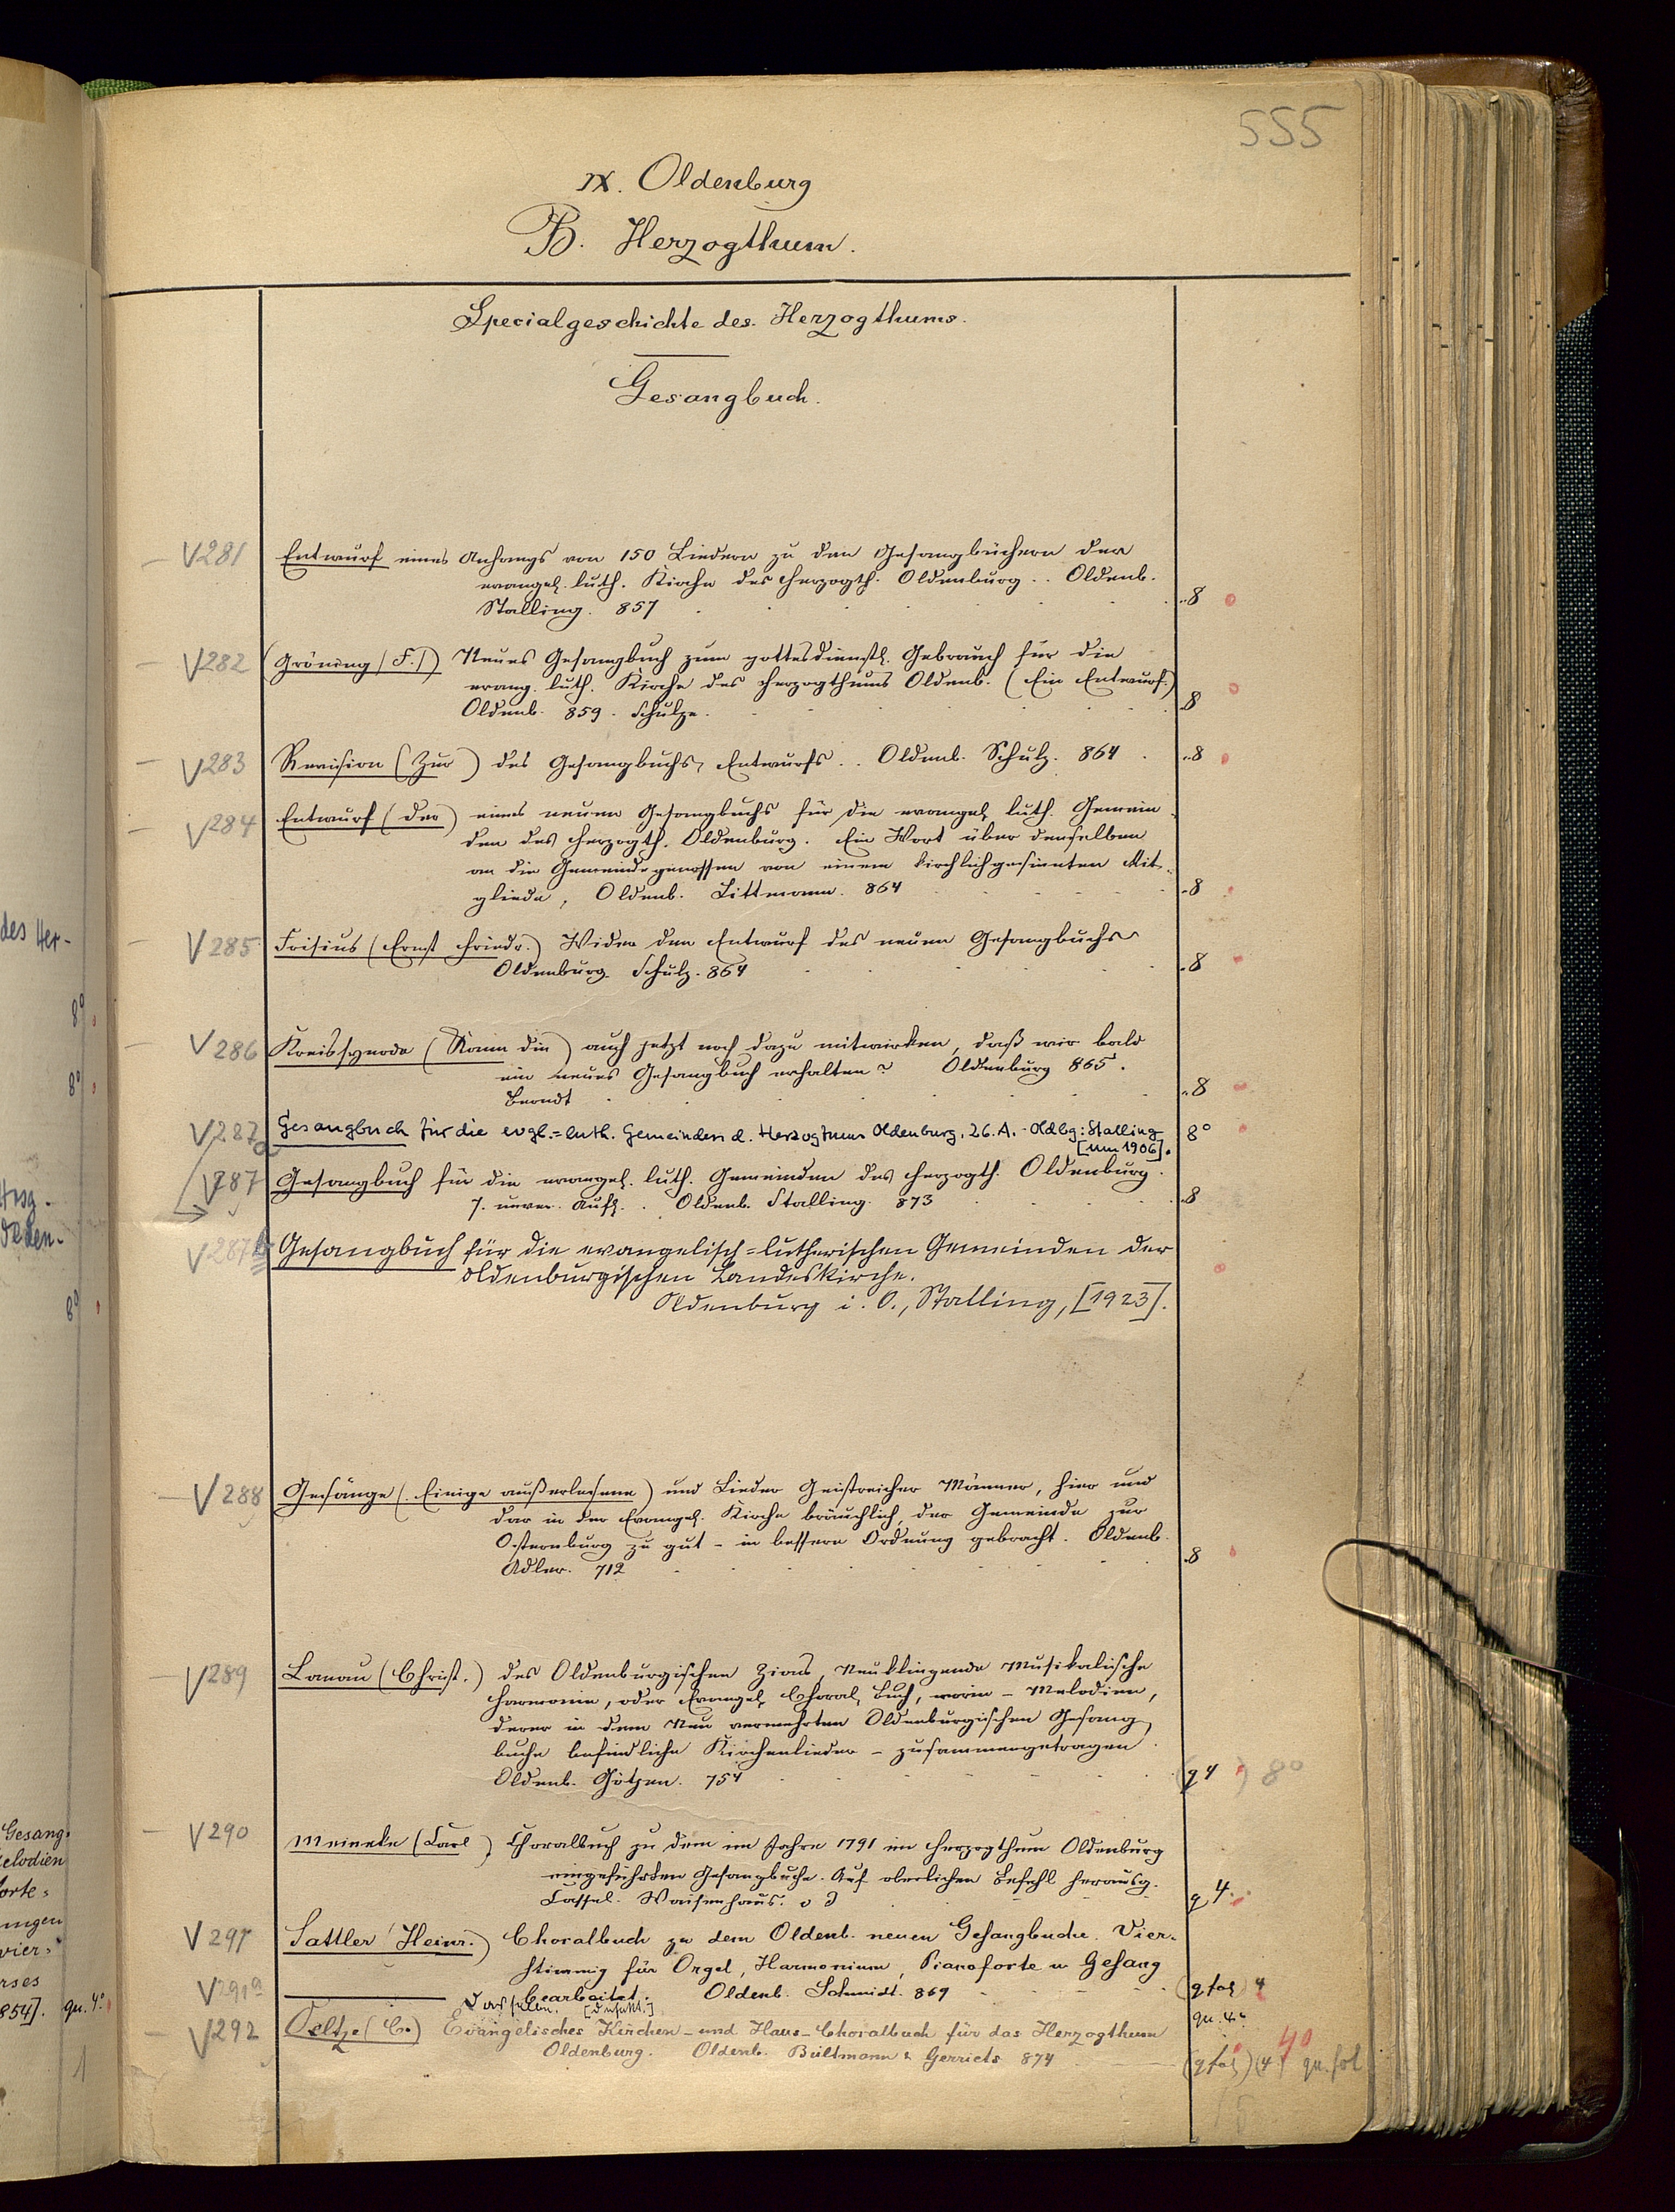 555
IX. Oldenburg
B. Herzogthum.
Specialgeschichte des Herzogthums.
Gesangbuch.
V281 Entwurf eines Anhangs von 150 Liedern zu den Gesangbüchern der
evangel. luth. Kirche des Herzogth. Oldenburg .. Oldenb.
Stalling. 857 8
V282 (Gröning (F.)) Neues Gesangbuch zum gottesdienstl. Gebrauch für die
evang. luth. Kirche des Herzogthums Oldenb. (Ein Entwurf.)
Oldenb. 859. Schulze. 8
V283 Revision (Zur) des Gesangbuchs, Entwurfs .. Oldenb. Schulz. 864 8
V284 Entwurf (Der) eines neuen Gesangbuchs für die evangel. luth. Gemein-
den des Herzogth. Oldenburg. Ein Wort über denselben
an die Gemeindegenossen von einem kirchlichgesinnten Mit-
gliede, Oldenb. Littmann. 864 8
V285 Frisius (Ernst Friedr.) Wider den Entwurf des neuen Gesangbuchs
Oldenburg. Schulz. 864 8
V286 Kreissynode (Kann die) auch jetzt noch dazu mitwirken, daß wir bald
ein neues Gesangbuch erhalten? Oldenburg 865.
Berndt 8
V287a Gesangbuch für die evgl.=luth. Gemeinden d. Herzogtums Oldenburg. 26. A. - Oldbg: Stalling 8°
[um 1906].
V287 Gesangbuch für die evangel. luth. Gemeinden des Herzogth. Oldenburg.
7. unver. Aufl. . Oldenb. Stalling. 873 8
V287b Gesangbuch für die evangelisch=lutherischen Gemeinden der
oldenburgischen Landeskirche.
Oldenburg i. O., Stalling, [1923].
V288 Gesänge (Einige außerlesene) und Lieder Geistreicher Männer, hier und
dar in der Evangel. Kirche bräuchlich, der Gemeinde zur
Osternburg zu gut - in bessere Ordnung gebracht. Oldenb.
Adler. 712 8
V289 Lanau (Christ.) des Oldenburgischen Zions, Neuklingende Musikalische
Harmonie, oder Evangel. Choral, Buch, worin - Melodien,
derer in dem Neu vermehrten Oldenburgischen Gesang
buche befindliche Kirchenlieder - zusammengetragen.
Oldenb. Götzen. 754 (q 4) 8°
V290 Meineke (Carl) Choralbuch zu dem im Jahre 1791 im Herzogthum Oldenburg
eingeführten Gesangbuche. Auf oberlichen Befehl herausg.
Cassel. Waisenhaus. o J q 4.
V291 Sattler (Heinr.) Choralbuch zu dem Oldenb. neuen Gesangbuche. Vier-
stimmig für Orgel, Harmonium, Pianoforte u Gesang
bearbeitet. Oldenb. Schmidt. 869 (q fol) 4
V291a Dasselben. [Defekt.] qu. 4°
V292 Oeltze (C.) Evangelisches Kirchen- und Haus-Choralbuch für das Herzogthum
Oldenburg. Oldenb. Bültmann & Gerriets 874 (q fol) (4) 4° qu. fol
des Her-
8°
8°
Hrsg.
Olden-
8°
Gesang-
elodien
forte-
ungen
vier-
rses
854]. qu. 4°